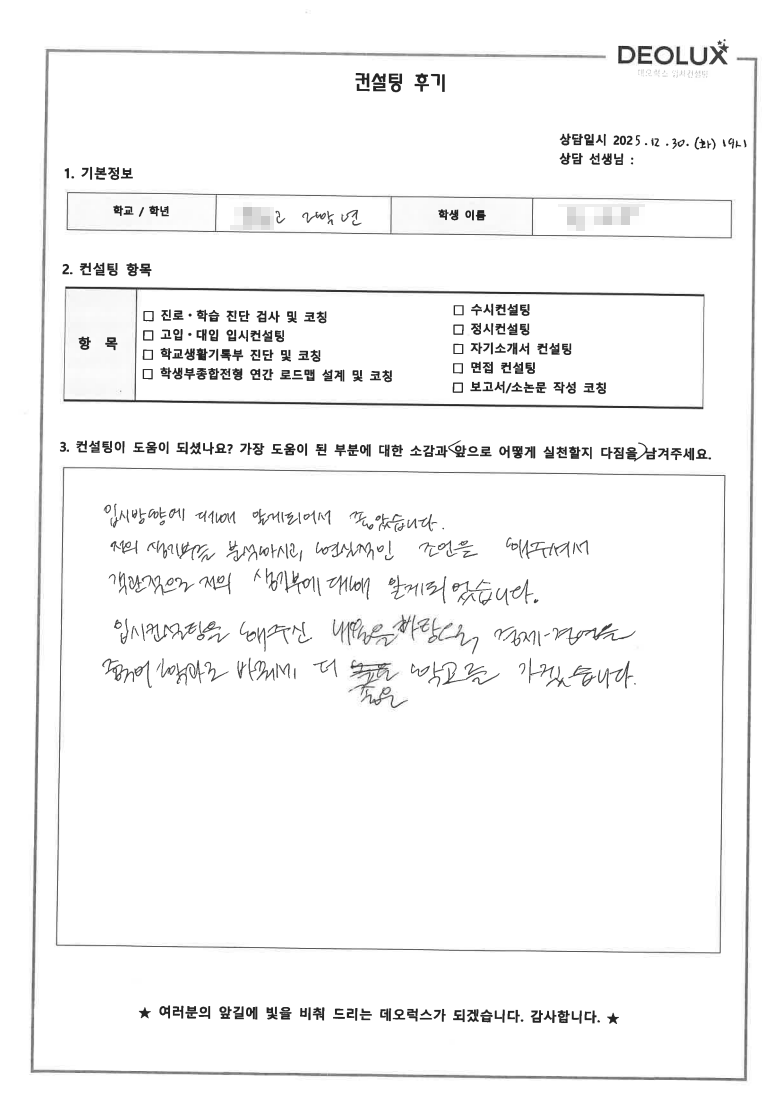 DEOLUX
데오럭스 입시컨설팅
컨설팅 후기
상담일시 2025.12.30.(화) 19시
상담 선생님 :
1. 기본정보
학교 / 학년 고 2학년 학생 이름
2. 컨설팅 항목
항 목
□ 진로·학습 진단 검사 및 코칭
□ 고입·대입 입시컨설팅
□ 학교생활기록부 진단 및 코칭
□ 학생부종합전형 연간 로드맵 설계 및 코칭
□ 수시컨설팅
□ 정시컨설팅
□ 자기소개서 컨설팅
□ 면접 컨설팅
□ 보고서/소논문 작성 코칭
3. 컨설팅이 도움이 되셨나요? 가장 도움이 된 부분에 대한 소감과 앞으로 어떻게 실천할지 다짐을 남겨주세요.
입시방향에 대해 알게되어서 좋았습니다.
저의 생기부를 분석하시고, 현실적인 조언을 해주셔서
객관적으로 저의 생기부에 대해 알게되었습니다.
입시컨설팅을 해주신 내용을 바탕으로, 경제·경영을
학과로 바꿔서 더 좋은 학교를 가겠습니다.
★ 여러분의 앞길에 빛을 비춰 드리는 데오럭스가 되겠습니다. 감사합니다. ★